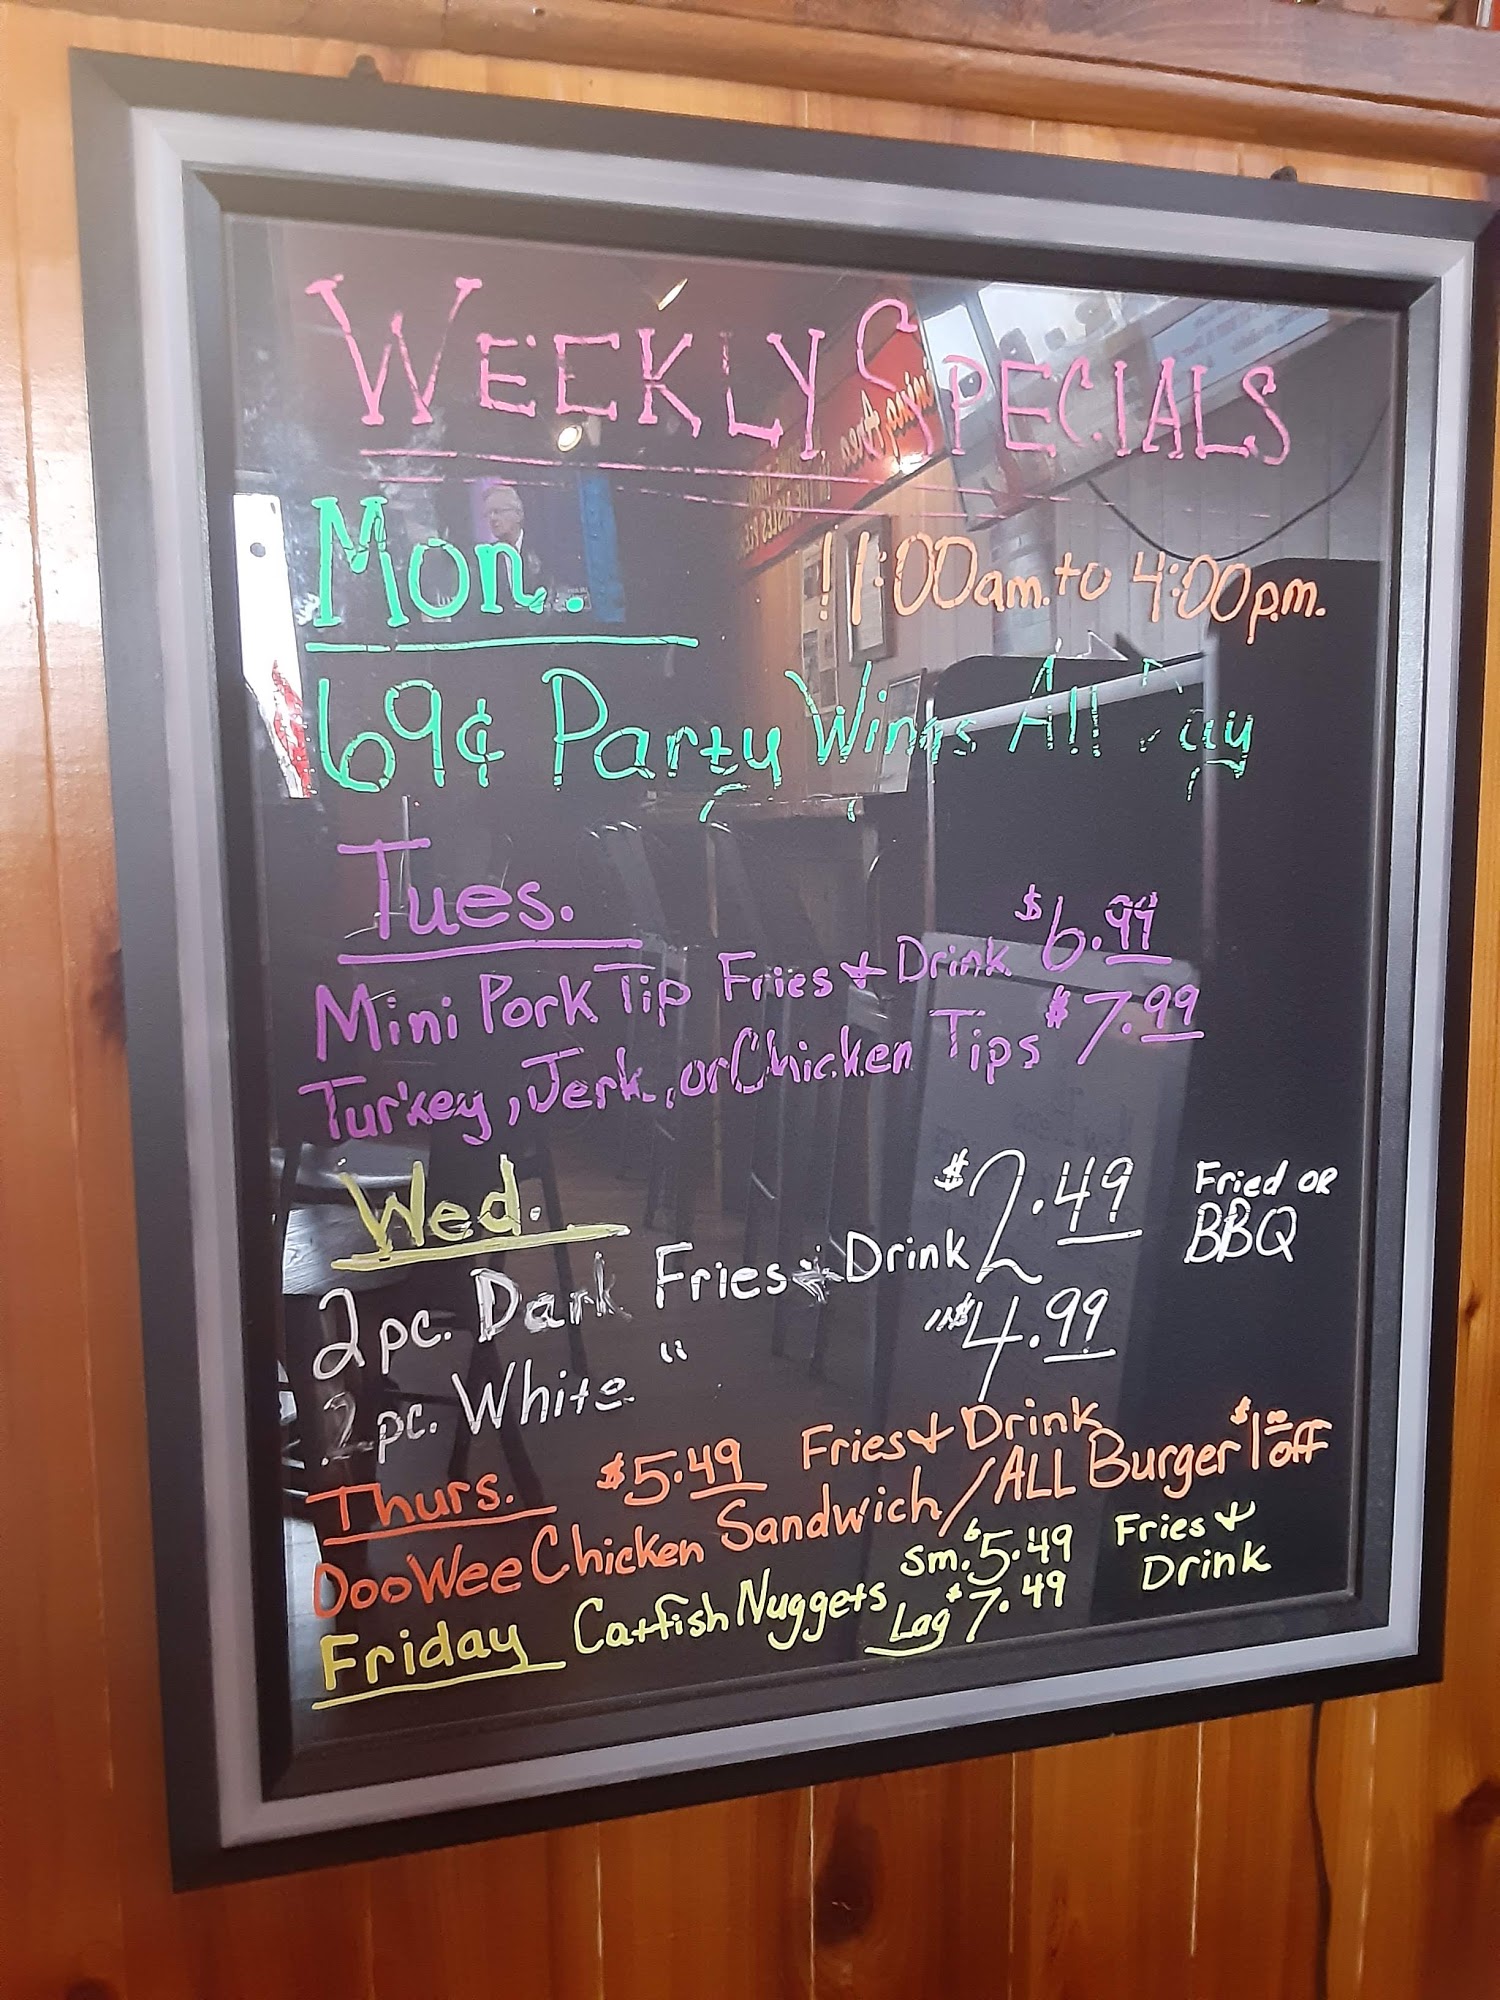 WEEKLY SPECIALS
Mon. 11:00am. to 4:00p.m.
69¢ Party Wings All Day
Tues.
Mini Pork Tip Fries & Drink $6.99
Turkey, Jerk, or Chicken Tips $7.99
Wed.
2pc. Dark Fries & Drink $2.49 Fried OR BBQ
2pc. White " " $4.99
Thurs. $5.49 Fries & Drink
DooWee Chicken Sandwich/ALL Burger $1.00 off
Friday Catfish Nuggets Sm. $5.49 Fries & Drink
Lag $7.49